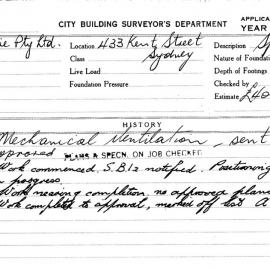 CITY BUILDING SURVEYOR'S DEPARTMENT
APPLICA
YEAR
ie Pty Ltd.
Location 433 Kent Street
Description
Class Sydney
Nature of Foundat
Live Load
Depth of Footings
Foundation Pressure
Checked by
Estimate £40
HISTORY
Mechanical Ventilation, sent
approved PLANS & SPECN. ON JOB CHECKED
Work commenced. S.B.I2 notified. Positioning
progress.
Work nearing completion no approved plan
Work complete to approval, marked off list A